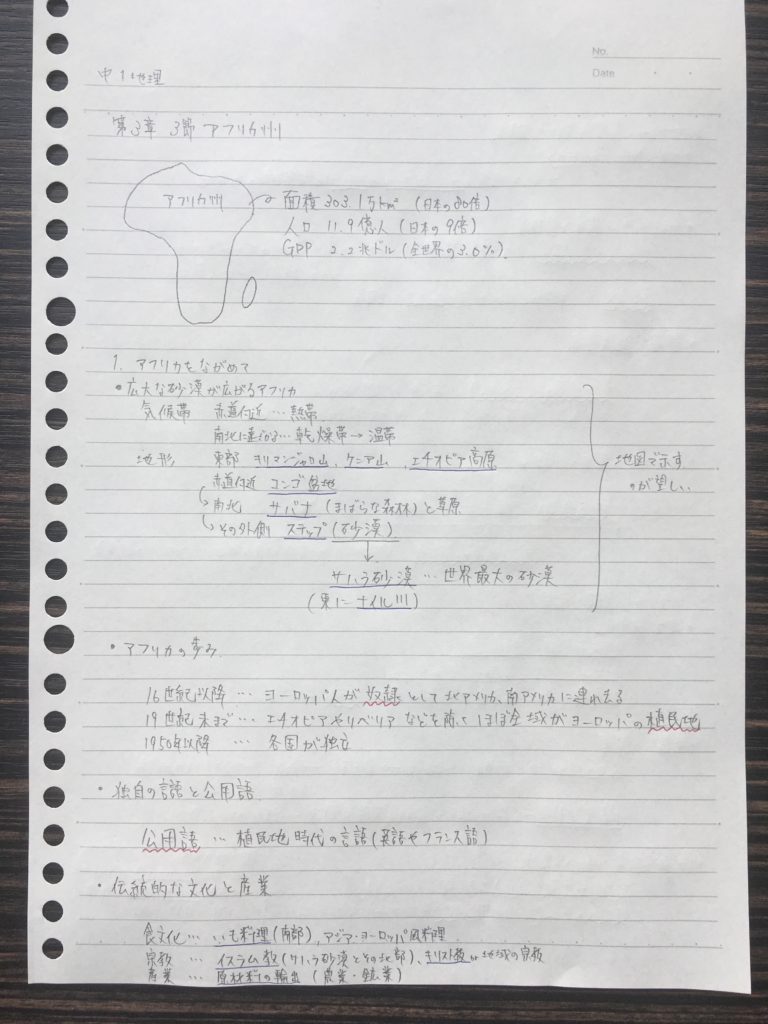 No.
Date
中1地理
第3章 3節 アフリカ州
アフリカ州
面積 303.1万km² (日本の80倍)
人口 11.9億人 (日本の9倍)
GPP 2.2兆ドル (全世界の3.0%)
1. アフリカをながめて
・広大な砂漠が広がるアフリカ
気候帯 赤道付近…熱帯
南北に遠ざかる…乾燥帯→温帯
地形 東部 キリマンジャロ山、ケニア山、エチオピア高原
赤道付近 コンゴ盆地
南北 サバナ (まばらな森林)と草原
その外側 ステップ(砂漠)
サハラ砂漠…世界最大の砂漠
(東に ナイル川)
地図で示す
のが望しい
・アフリカの歩み
16世紀以降… ヨーロッパ人が奴隷として北アメリカ、南アメリカに連れ去る
19世紀末まで… エチオピアやリベリアなどを除く ほぼ全域がヨーロッパの植民地
1950年以降 … 各国が独立
・独自の言語と公用語
公用語 … 植民地時代の言語(英語やフランス語)
・伝統的な文化と産業
食文化… いも料理(南部)、アジア・ヨーロッパ風料理
宗教 … イスラム教(サハラ砂漠とその北部)、キリスト教や地域の宗教
産業 … 原材料の輸出 (農業・鉱業)